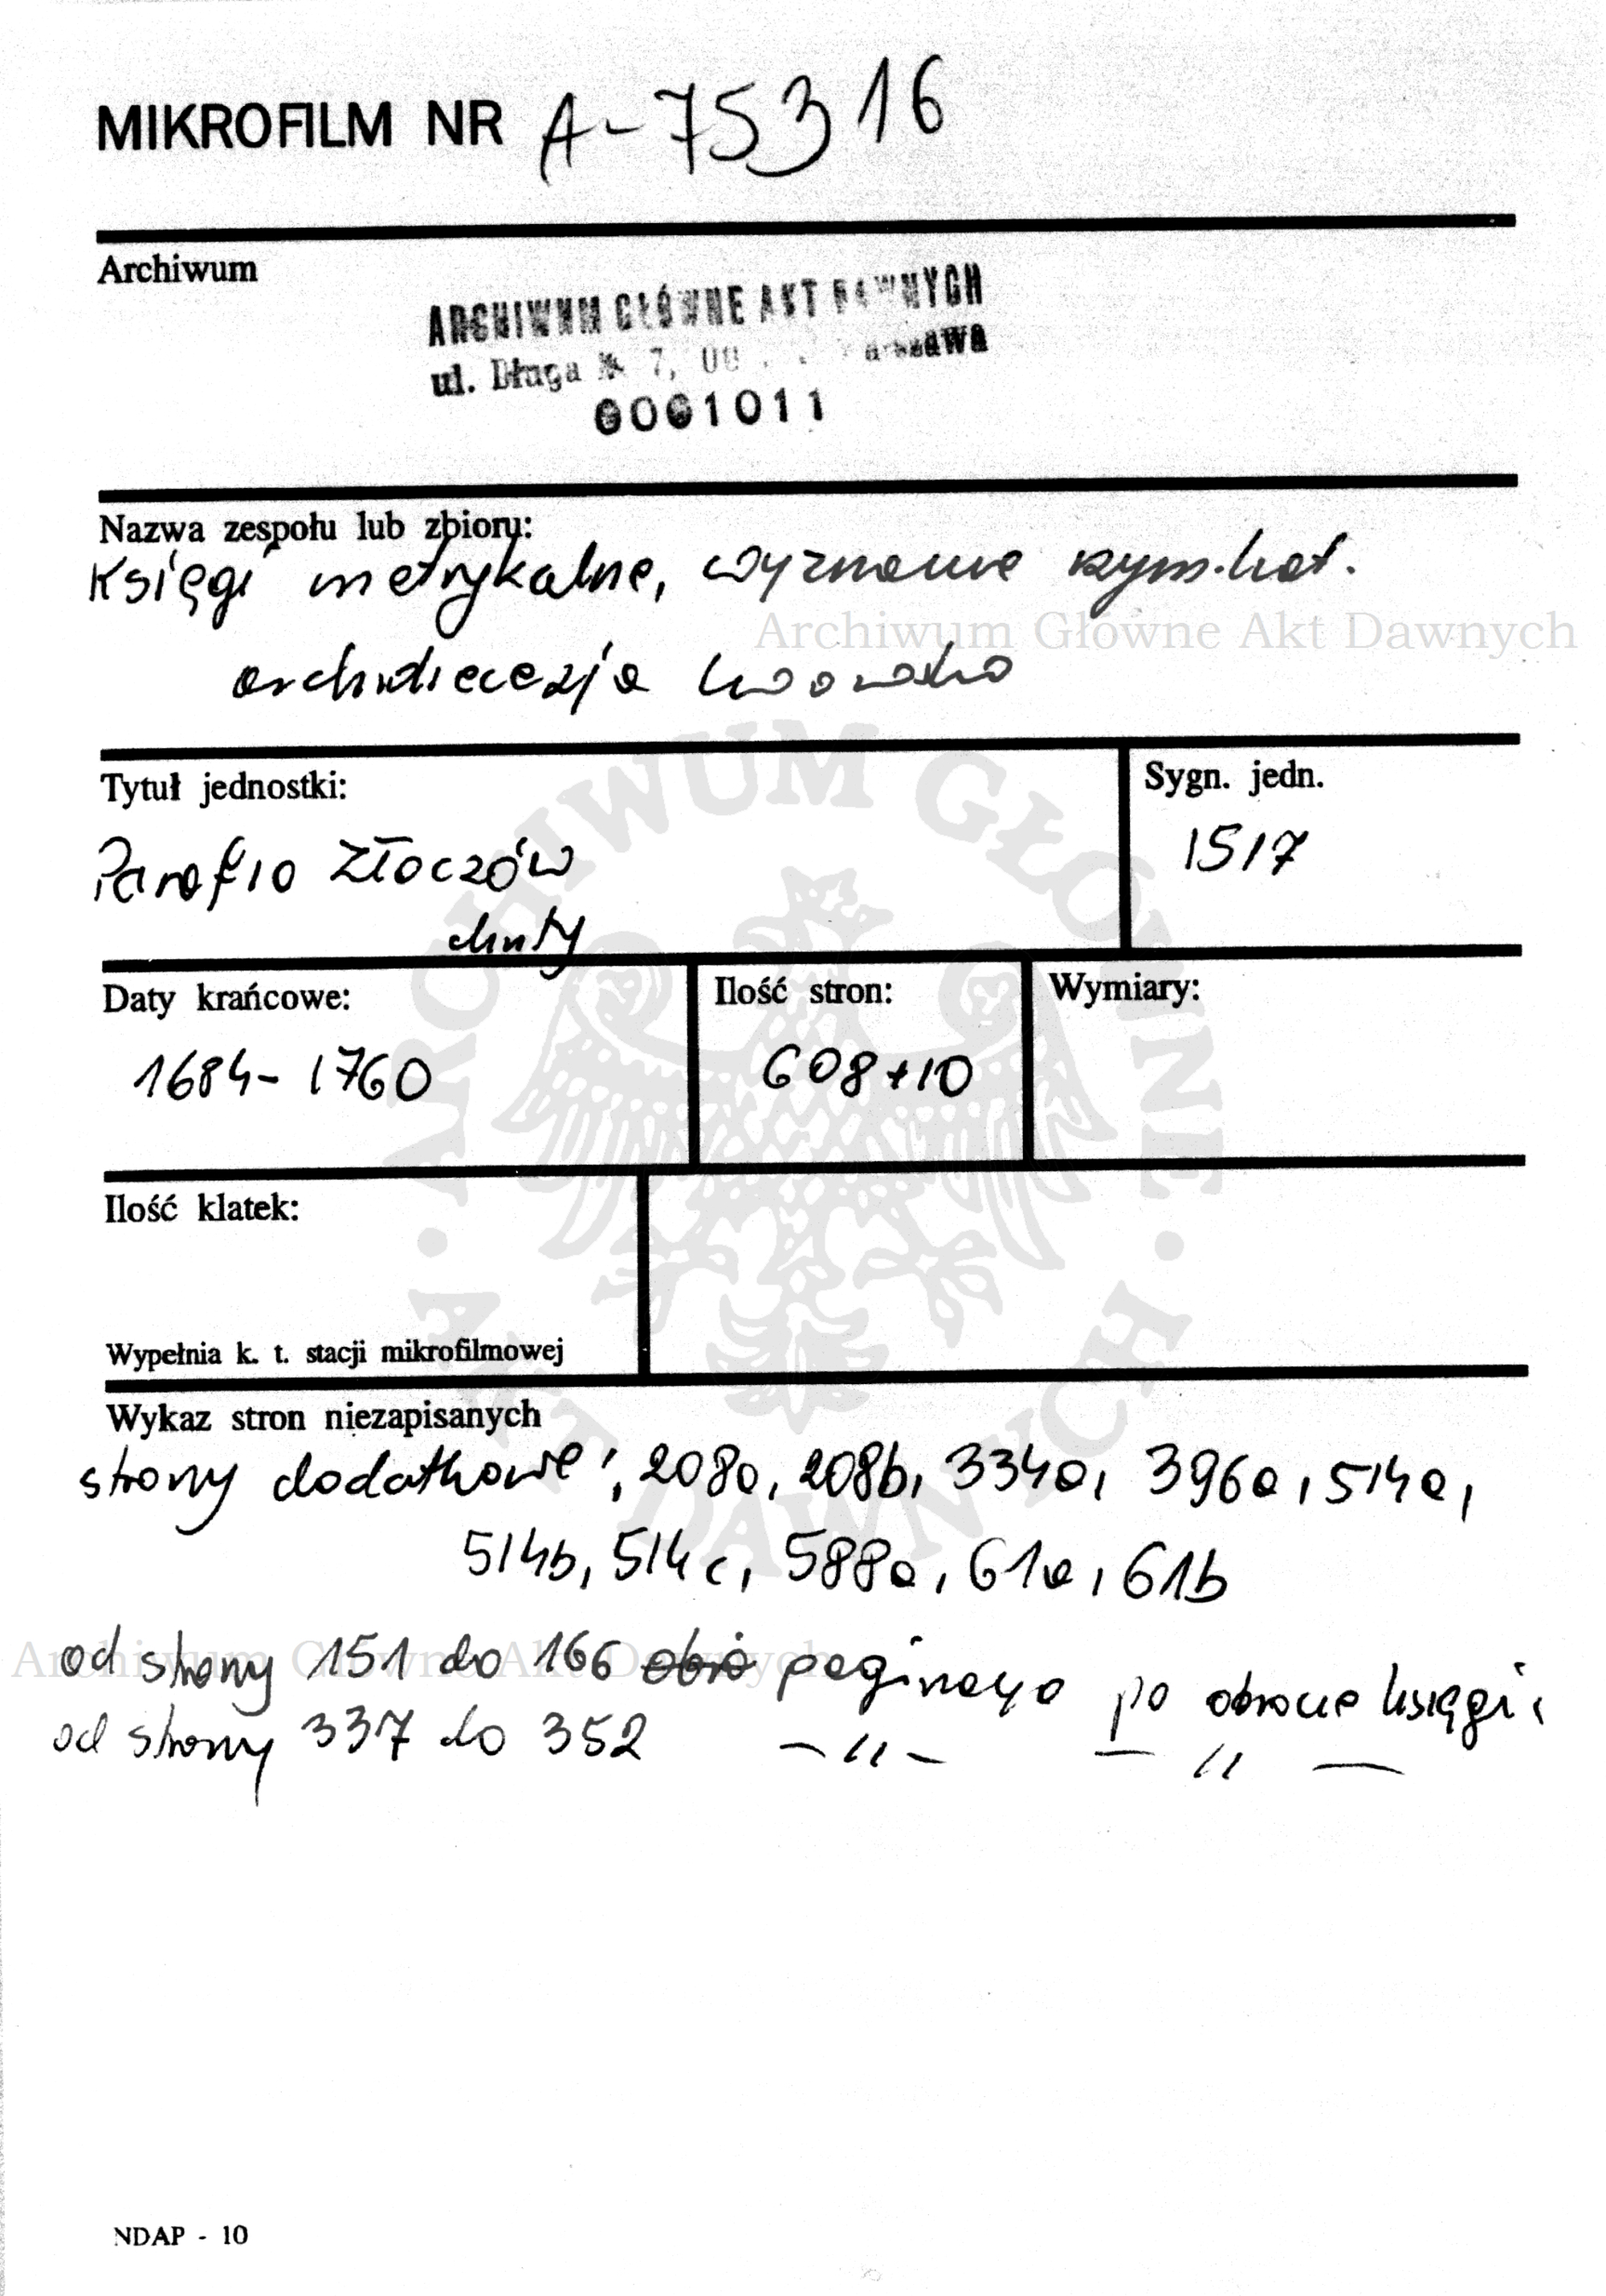 MIKROFILM NR A-75316
Archiwum
ARCHIWUM GŁÓWNE AKT DAWNYCH
ul. Długa 7, 00 Warszawa
0001011
Nazwa zespołu lub zbioru:
Księgi metrykalne, wyznanie rzym.kat.
Archiwum Główne Akt Dawnych
archidiecezja lwowska
Tytuł jednostki:
Sygn. jedn.
Parafia Złoczów
1517
chrzty
Daty krańcowe:
Ilość stron:
Wymiary:
1684- 1760
608+10
Ilość klatek:
Wypełnia k. t. stacji mikrofilmowej
ARCHIWUM GŁÓWNE AKT DAWNYCH
Wykaz stron niezapisanych
strony dodatkowe: 208a, 208b, 334a, 396a, 514a,
514b, 514c, 588a, 61a, 61b
Archiwum Główne Akt Dawnych
od strony 151 do 166 paginacja po obrocie księgi,
od strony 337 do 352 -"- -"-
NDAP - 10